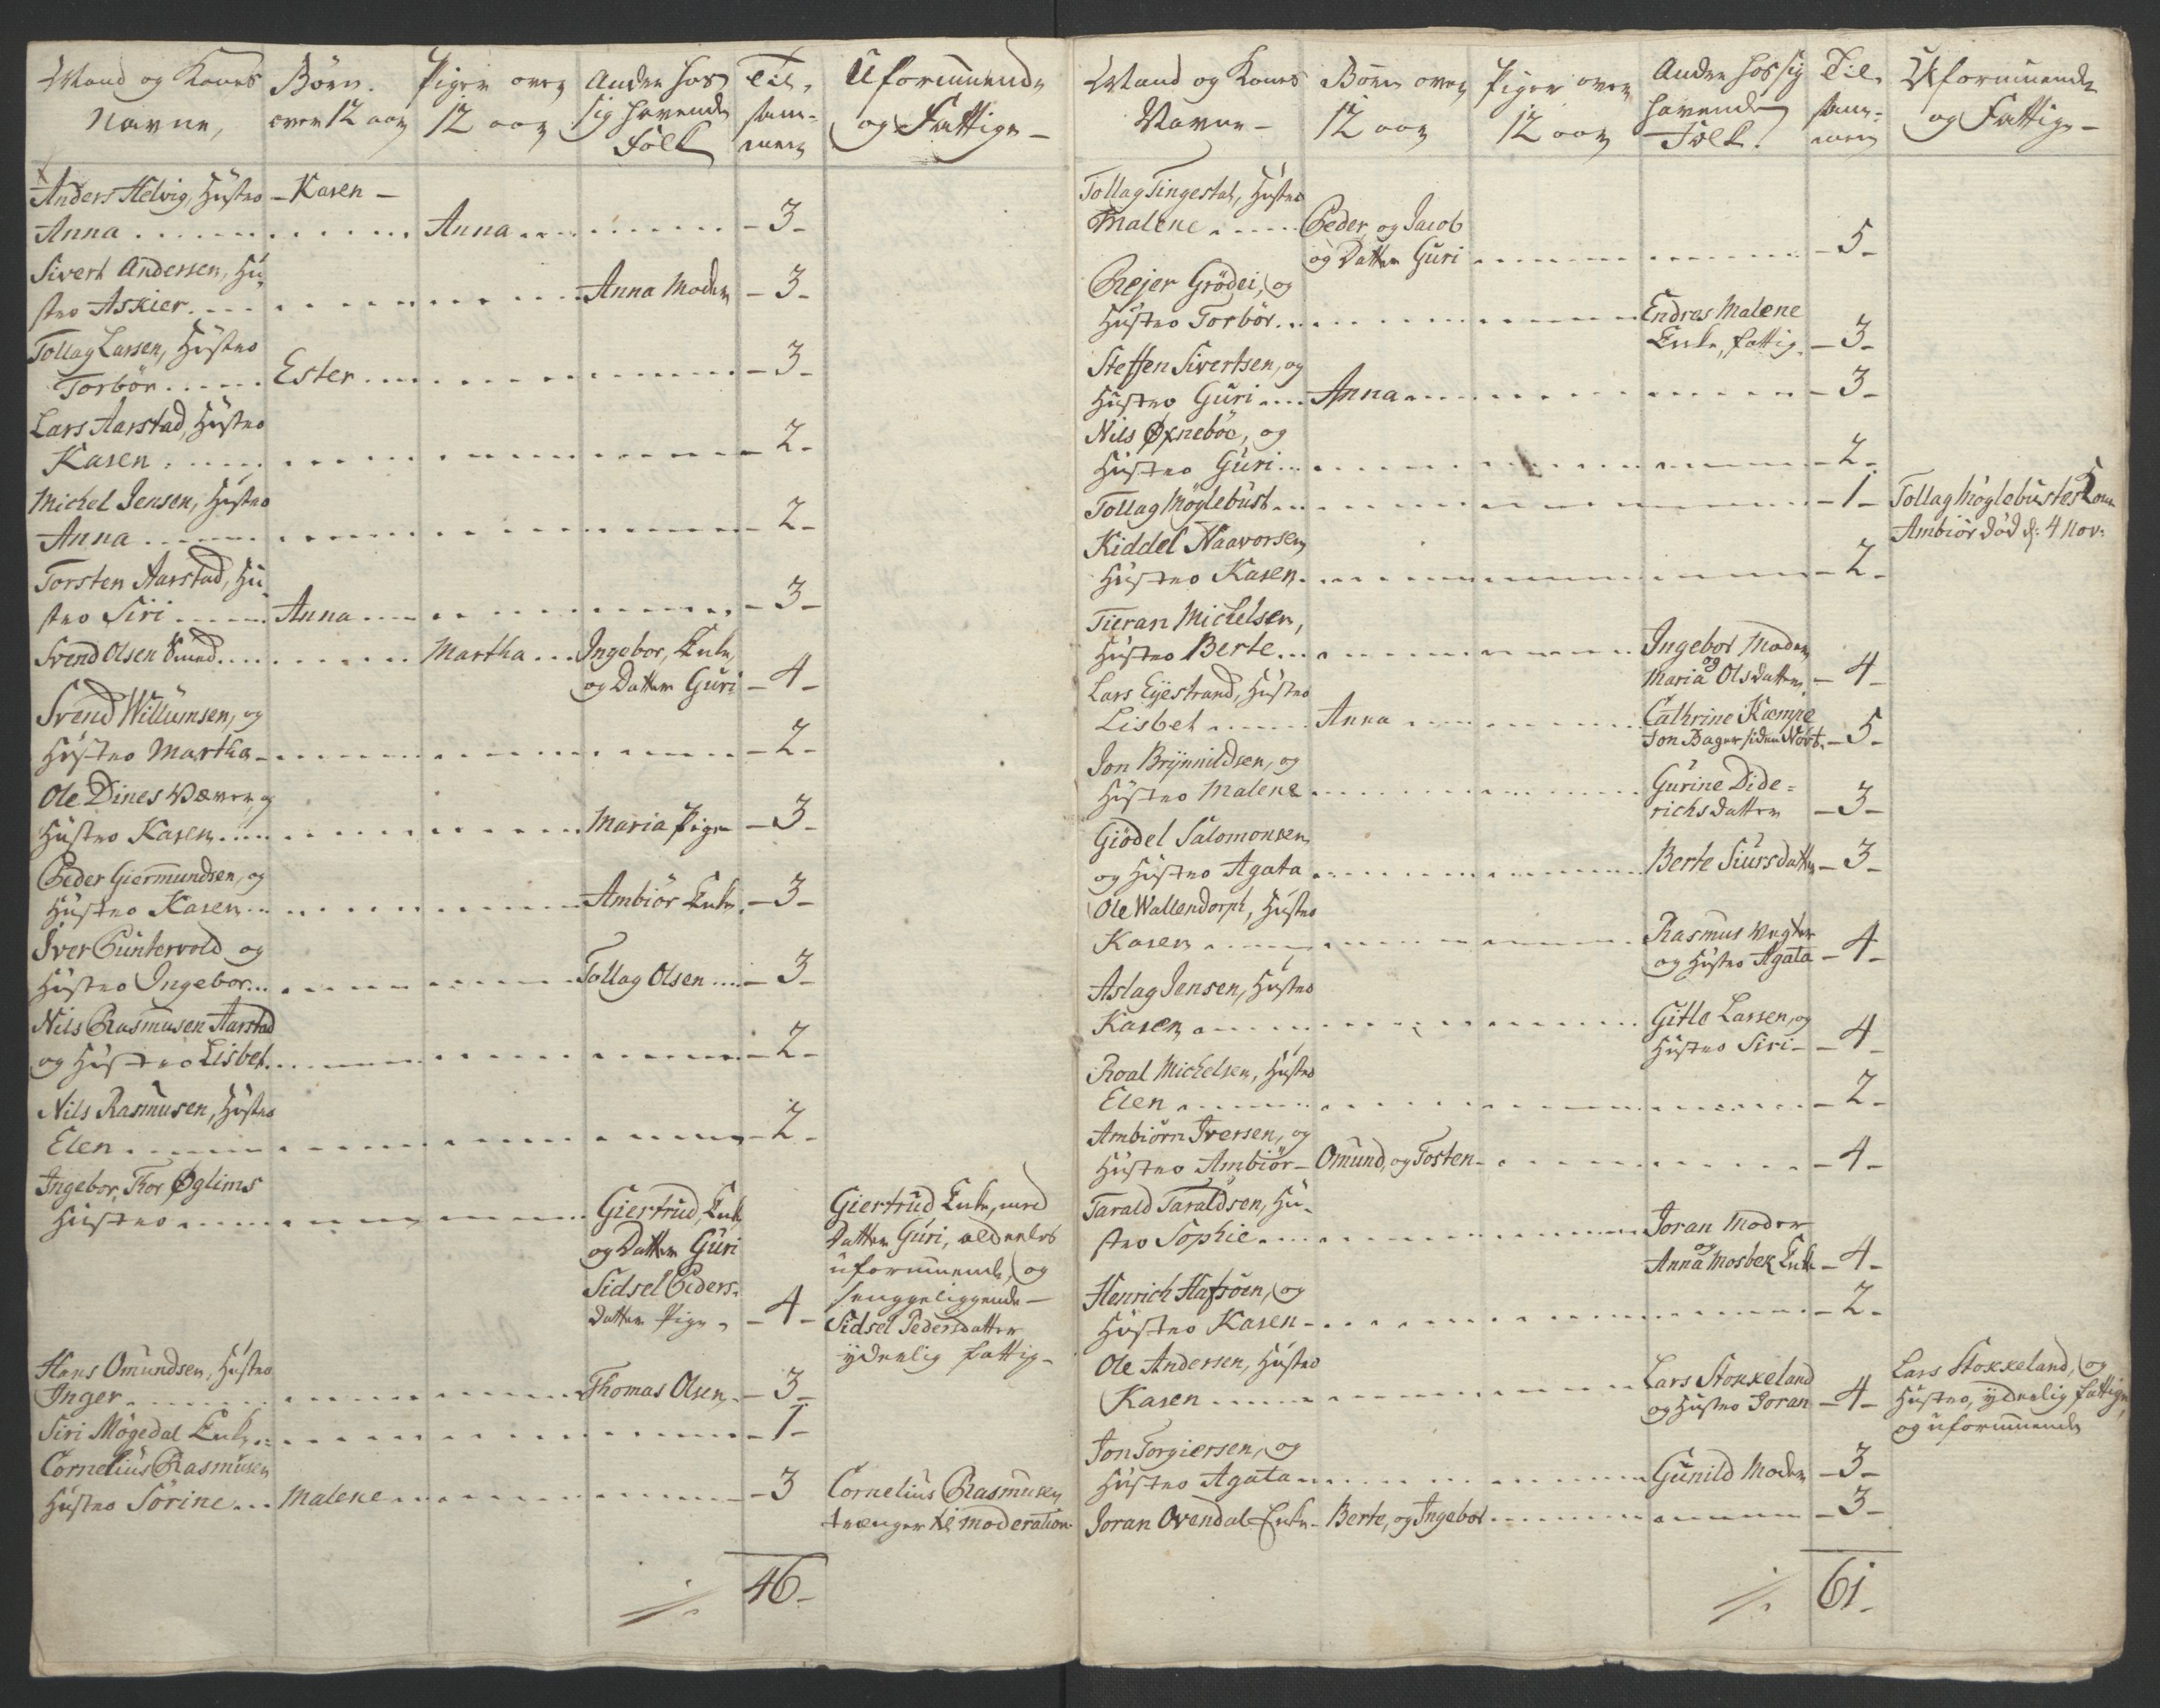 Mand og Kones Navne,
Börn over 12 aar
Piger over 12 aar
Andre hos sig havende Folk
Til-sam-men
Uformuende og Fattige -
Anders Helvig, Hustro - Karen -
Anna . . . . . Anna . . . . . - 3 -
Sivert Andersen, Hu-
stro Askier . . . . . Anna Moder - 3 -
Tollag Larsen, Hustro
Torbör . . . . . Ester . . . . . - 3 -
Lars Aarstad, Hustro
Karen . . . . . - 2 -
Michel Jensen, Hustro
Anna . . . . . - 2 -
Torsten Aarstad, Hu-
stro Siri . . . . . Anna . . . . . - 3 -
Svend Olsen Smed . . . . . Martha . . . Ingebor, Enke,
og Datter Guri - 4 -
Svend Willumsen, og
Hustro Martha - . . . . . - 2 -
Ole Dines Væver, og
Hustro Karen . . . . . Maria Pige - 3 -
Peder Giermundsen, og
Hustro Karen . . . . . Ambiör Enke - 3 -
Iver Puntervold og
Hustro Ingebor . . . . . Tollag Olsen . . . . - 3 -
Nils Rasmusen Aarstad
og Hustro Lisbet . . . . . - 2 -
Nils Rasmusen, Hustro
Elen . . . . . - 2 -
Ingebor, Thor Øglims
Hustro . . . . . Giertrud, Enke
og Datter Guri
Sidsel Peders-
datter Pige - - 4 -
Giertrud Enke, med
Datter Guri, aldeeles
uformuende, og
senggeliggende -
Sidsel Pedersdatter
yderlig fattig -
Hans Omundsen, Hustro
Inger . . . . . Thomas Olsen - - 3 -
Siri Mögedal Enke . . . . . - 1 -
Cornelius Rasmusen
Hustro Sörine . . . Malene . . . . . - 3 Cornelius Rasmusen
trænger til moderation.
46 -
Mand og Kones Navne -
Börn over 12 aar
Piger over 12 aar
Andre hos sig havende Folk.
Til-sam-men
Uformuende og Fattige -
Tollag Tingestal, Hustro
Malene . . . . . Peder, og Jacob
og Datter Guri . . . . . - 5 -
Rejer Grödei, og
Hustro Torbör . . . . . Endres Malene
Enke, fattig - 3 -
Steffen Sivertsen, og
Hustro Guri . . . . Anna . . . . . - 3 -
Nils Øxneböe, og
Hustro Guri . . . . . - 2 -
Tollag Möglebust . . . . . - 1 - Tollag Möglebustes Kone
Ambiör död d: 4 Nov:
Kiddel Naavorsen
Hustro Karen . . . . . - 2 -
Tieran Michelsen,
Hustro Berte . . . . . Ingebor Moder
og
Maria Olsdatter - 4 -
Lars Eyestrand, Hustro
Lisbet . . . . . Anna . . . . . Cathrine Kæmpe
Jon Bager siden Novb. - 5 -
Jon Brynnildsen, og
Hustro Malene . . . . . Gurine Dide=
richsdatter - 3 -
Giödel Salomonsen
og Hustro Agata . . . . . Berte Siursdatter - 3 -
Ole Wallendorph, Hustro
Karen . . . . . Rasmus Vegter
og Hustro Agata - 4 -
Aslag Jensen, Hustro
Karen . . . . . Gitle Larsen, og
Hustro Siri - - 4 -
Roal Michelsen, Hustro
Elen . . . . . - 2 -
Ambiörn Iversen, og
Hustro Ambiör - Omund, og Tosten - . . . . . - 4 -
Tarald Taraldsen, Hu-
stro Sophie . . . . . Joran Moder
og
Anna Mosbek Enke - 4 -
Henrich Hafsöen, og
Hustro Karen - . . . . . - 2 -
Ole Andersen, Hustro
Karen . . . . . Lars Stokkeland
og Hustro Joran - 4 -
Lars Stokkeland, og
Hustro, yderlig fattige,
og uformuende
Jon Torgiersen, og
Hustro Agata . . . . . Gunild Moder - 3 -
Joran Ovendal Enke - Berte, og Ingebor . . . . . - 3 -
61 -